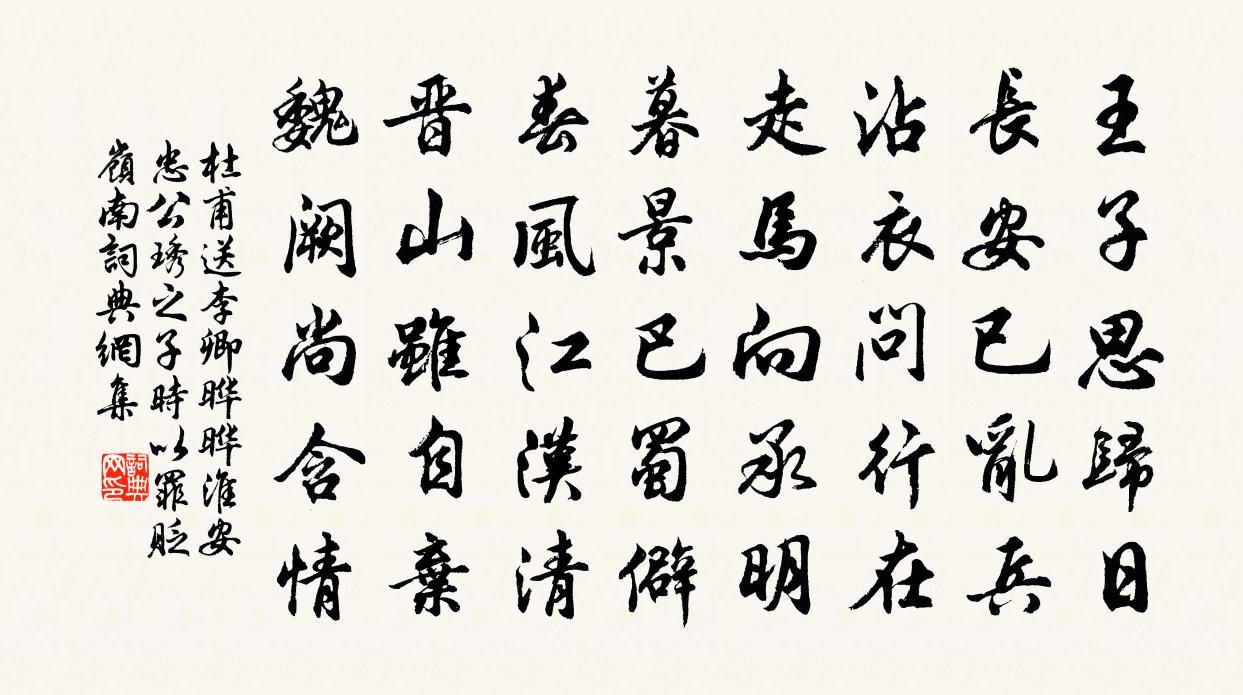 王子思歸日
長安已亂兵
沾衣問行在
走馬向承明
暮景巴蜀僻
春風江漢清
晋山雖自棄
魏闕尚含情
杜甫送李卿曄曄淮安
忠公琇之子時以罪貶
嶺南詞典網集
詞典网印